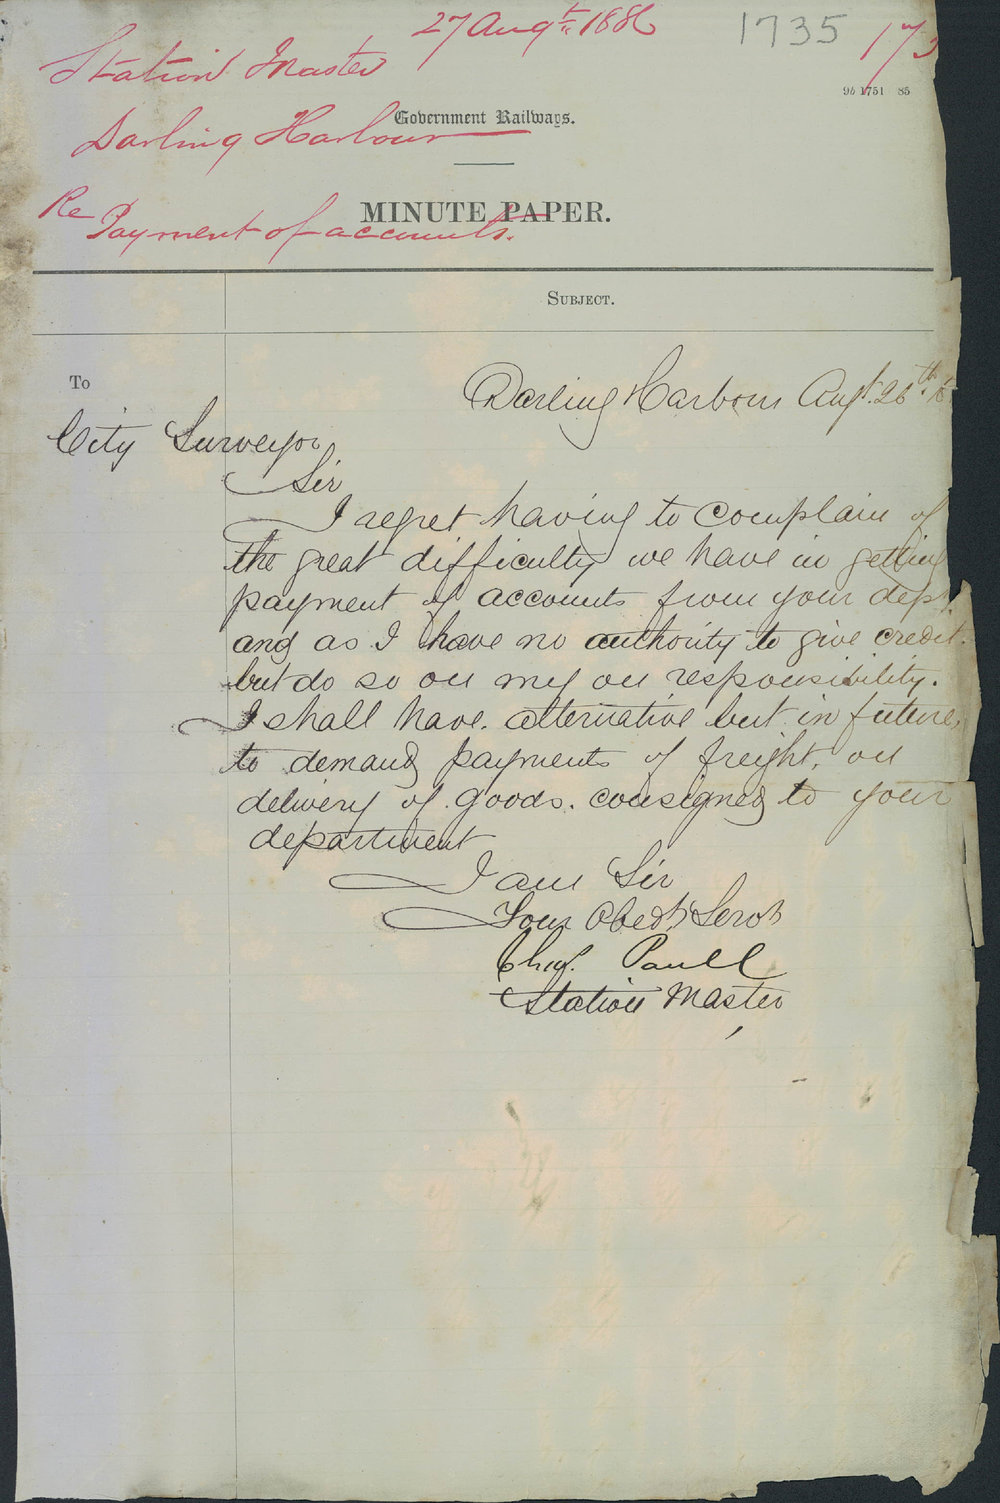 27 Augt. 1886
1735
Station Master
9b 1751 85
Government Railways.
Darling Harbour
MINUTE PAPER.
Re Payment of accounts.
SUBJECT.
To
Darling Harbour Augt. 26th
City Surveyor
Sir
I regret having to complain of
the great difficulty we have in getting
payment of accounts from your dept.
and as I have no authority to give credit.
but do so on my on responsibility.
I shall have. alternative but in future,
to demand payments of freight, on
delivery of goods. consigned to your
department
I am Sir
Your Obedt. Servt
Chas. Paull
Station Master